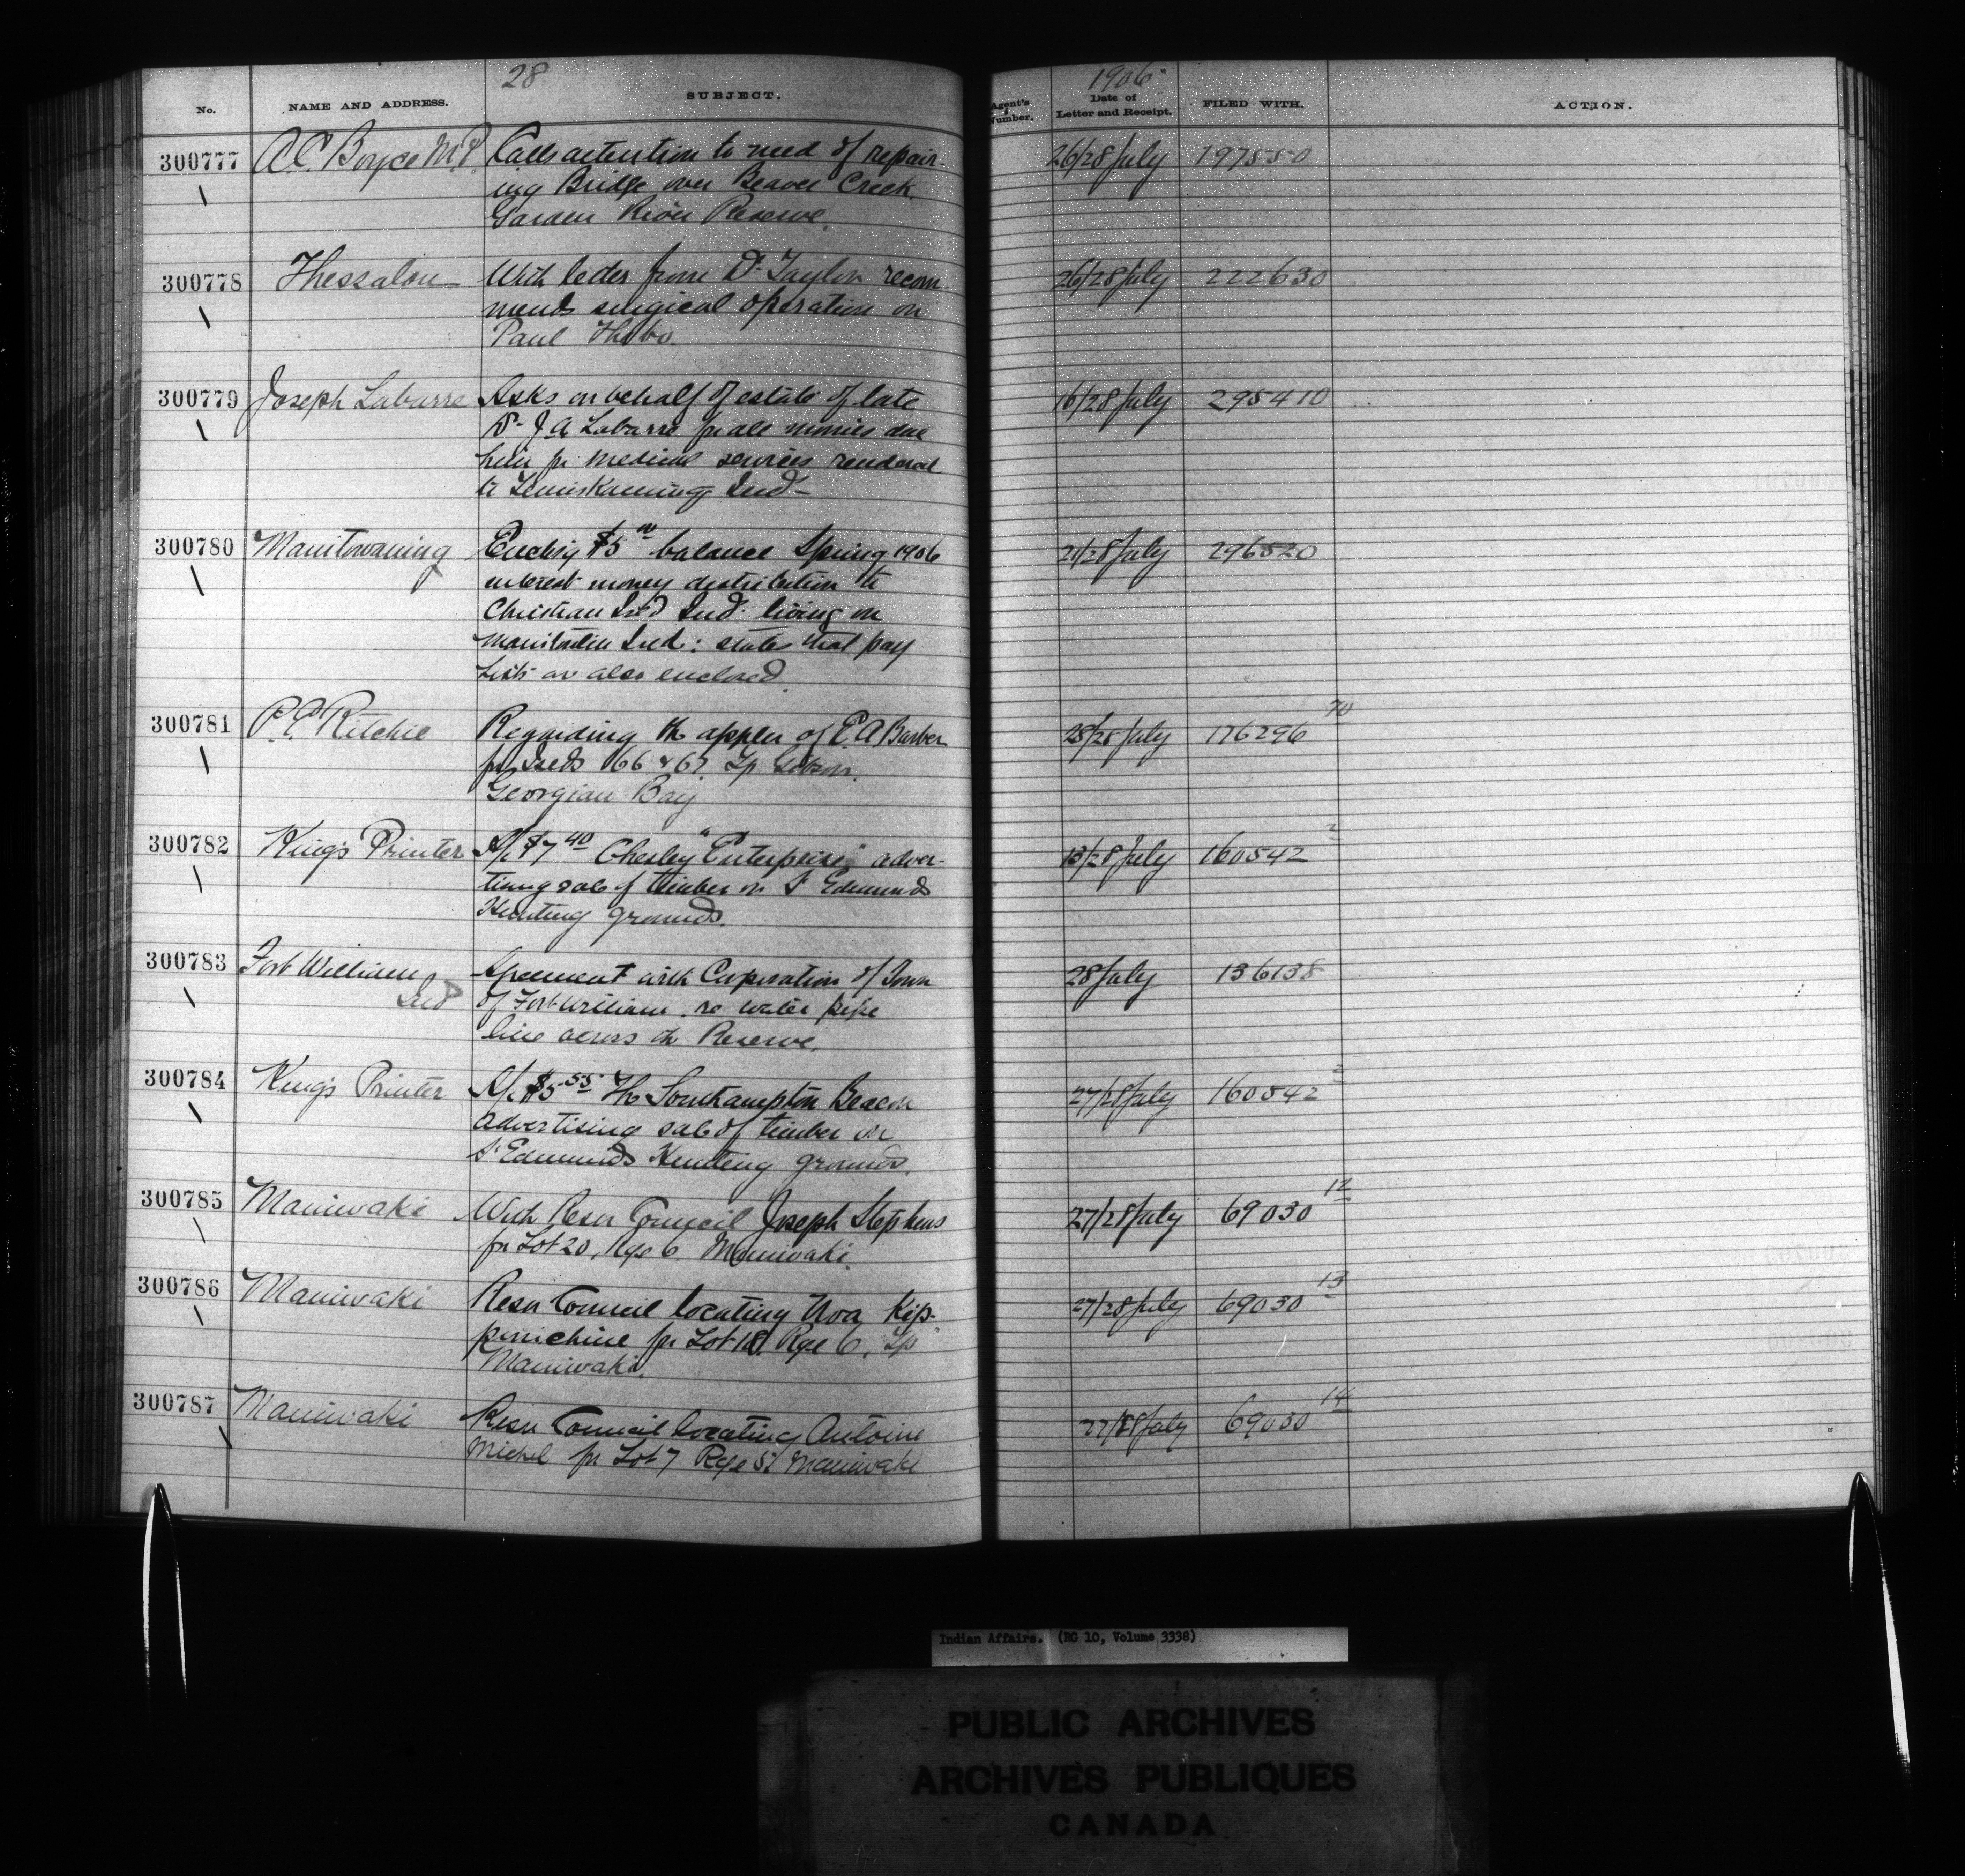 28
1906
No. NAME AND ADDRESS. SUBJECT. Agent's Number. Date of Letter and Receipt. FILED WITH. ACTION.
300777 A.C. Boyce M.P. Calls attention to need of repair- 26/28 July 197550
ing Bridge over Beaver Creek.
Garden River Reserve.
300778 Thessalon With letter from Dr. Taylor recom- 26/28 July 222630
mends surgical operation on
Paul
300779 Joseph Labarre Asks on behalf of estate of late 16/28 July 295410
Dr. J A Labarre for all monies due
him for medical services rendered
to Temiskaming Inds
300780 Manitowaning Enclsg $5 00 balance Spring 1906 28 July 296520
interest money distribution to
Christian Isld Inds. living on
Manitoulin Isld: states that pay
Lists are also enclosed.
300781 Ritchie Regarding the appln of Barber 28 July 176296 70
for Islds 166 & 67 Tp Gibson.
Georgian Bay
300782 King's Printer A/c $7 40 Chesley "Enterprise" adver- 13/28 July 160542 2
tising sale of timber on St Edmunds
Hunting grounds.
300783 Fort William Agreement with Corporation of Town 28 July 136138
Ind of Fort William. re water pipe
line across the Reserve.
300784 King's Printer A/c $5 55 The Southampton Beacon 27/28 July 160542 2
advertising sale of timber on
St. Edmunds Hunting grounds.
300785 Maniwaki With Resn Council Joseph Stephens 27/28 July 69030 12
for Lot 20, Rge 6 Maniwaki.
300786 Maniwaki Resn Council locating Noa Kip- 27/28 July 69030 13
penichine for Lot 18 Rge 6, Tp
Maniwaki.
300787 Maniwaki Resn Council locating Antoine 27/28 July 69030 14
Michel for Lot 7 Rge 5 Maniwaki
Indian Affairs. (RG 10, Volume 3338)
PUBLIC ARCHIVES
ARCHIVES PUBLIQUES
CANADA